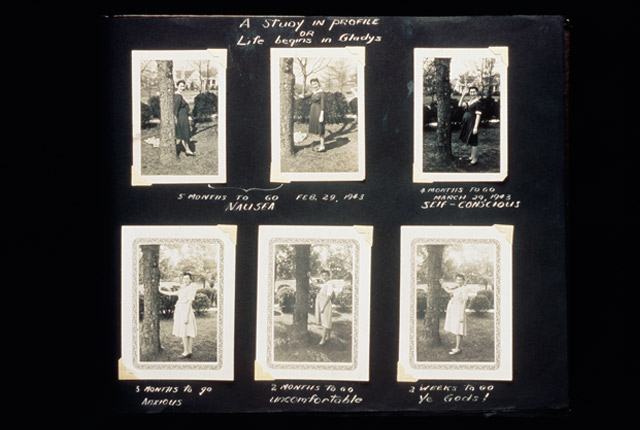 A Study in Profile
or
Life begins in Gladys
5 Months to go Feb. 29, 1943
Nausea
4 Months to go
March 29, 1943
Self-Conscious
3 Months to go
Anxious
2 Months to go
uncomfortable
2 Weeks to go
Ye Gods!